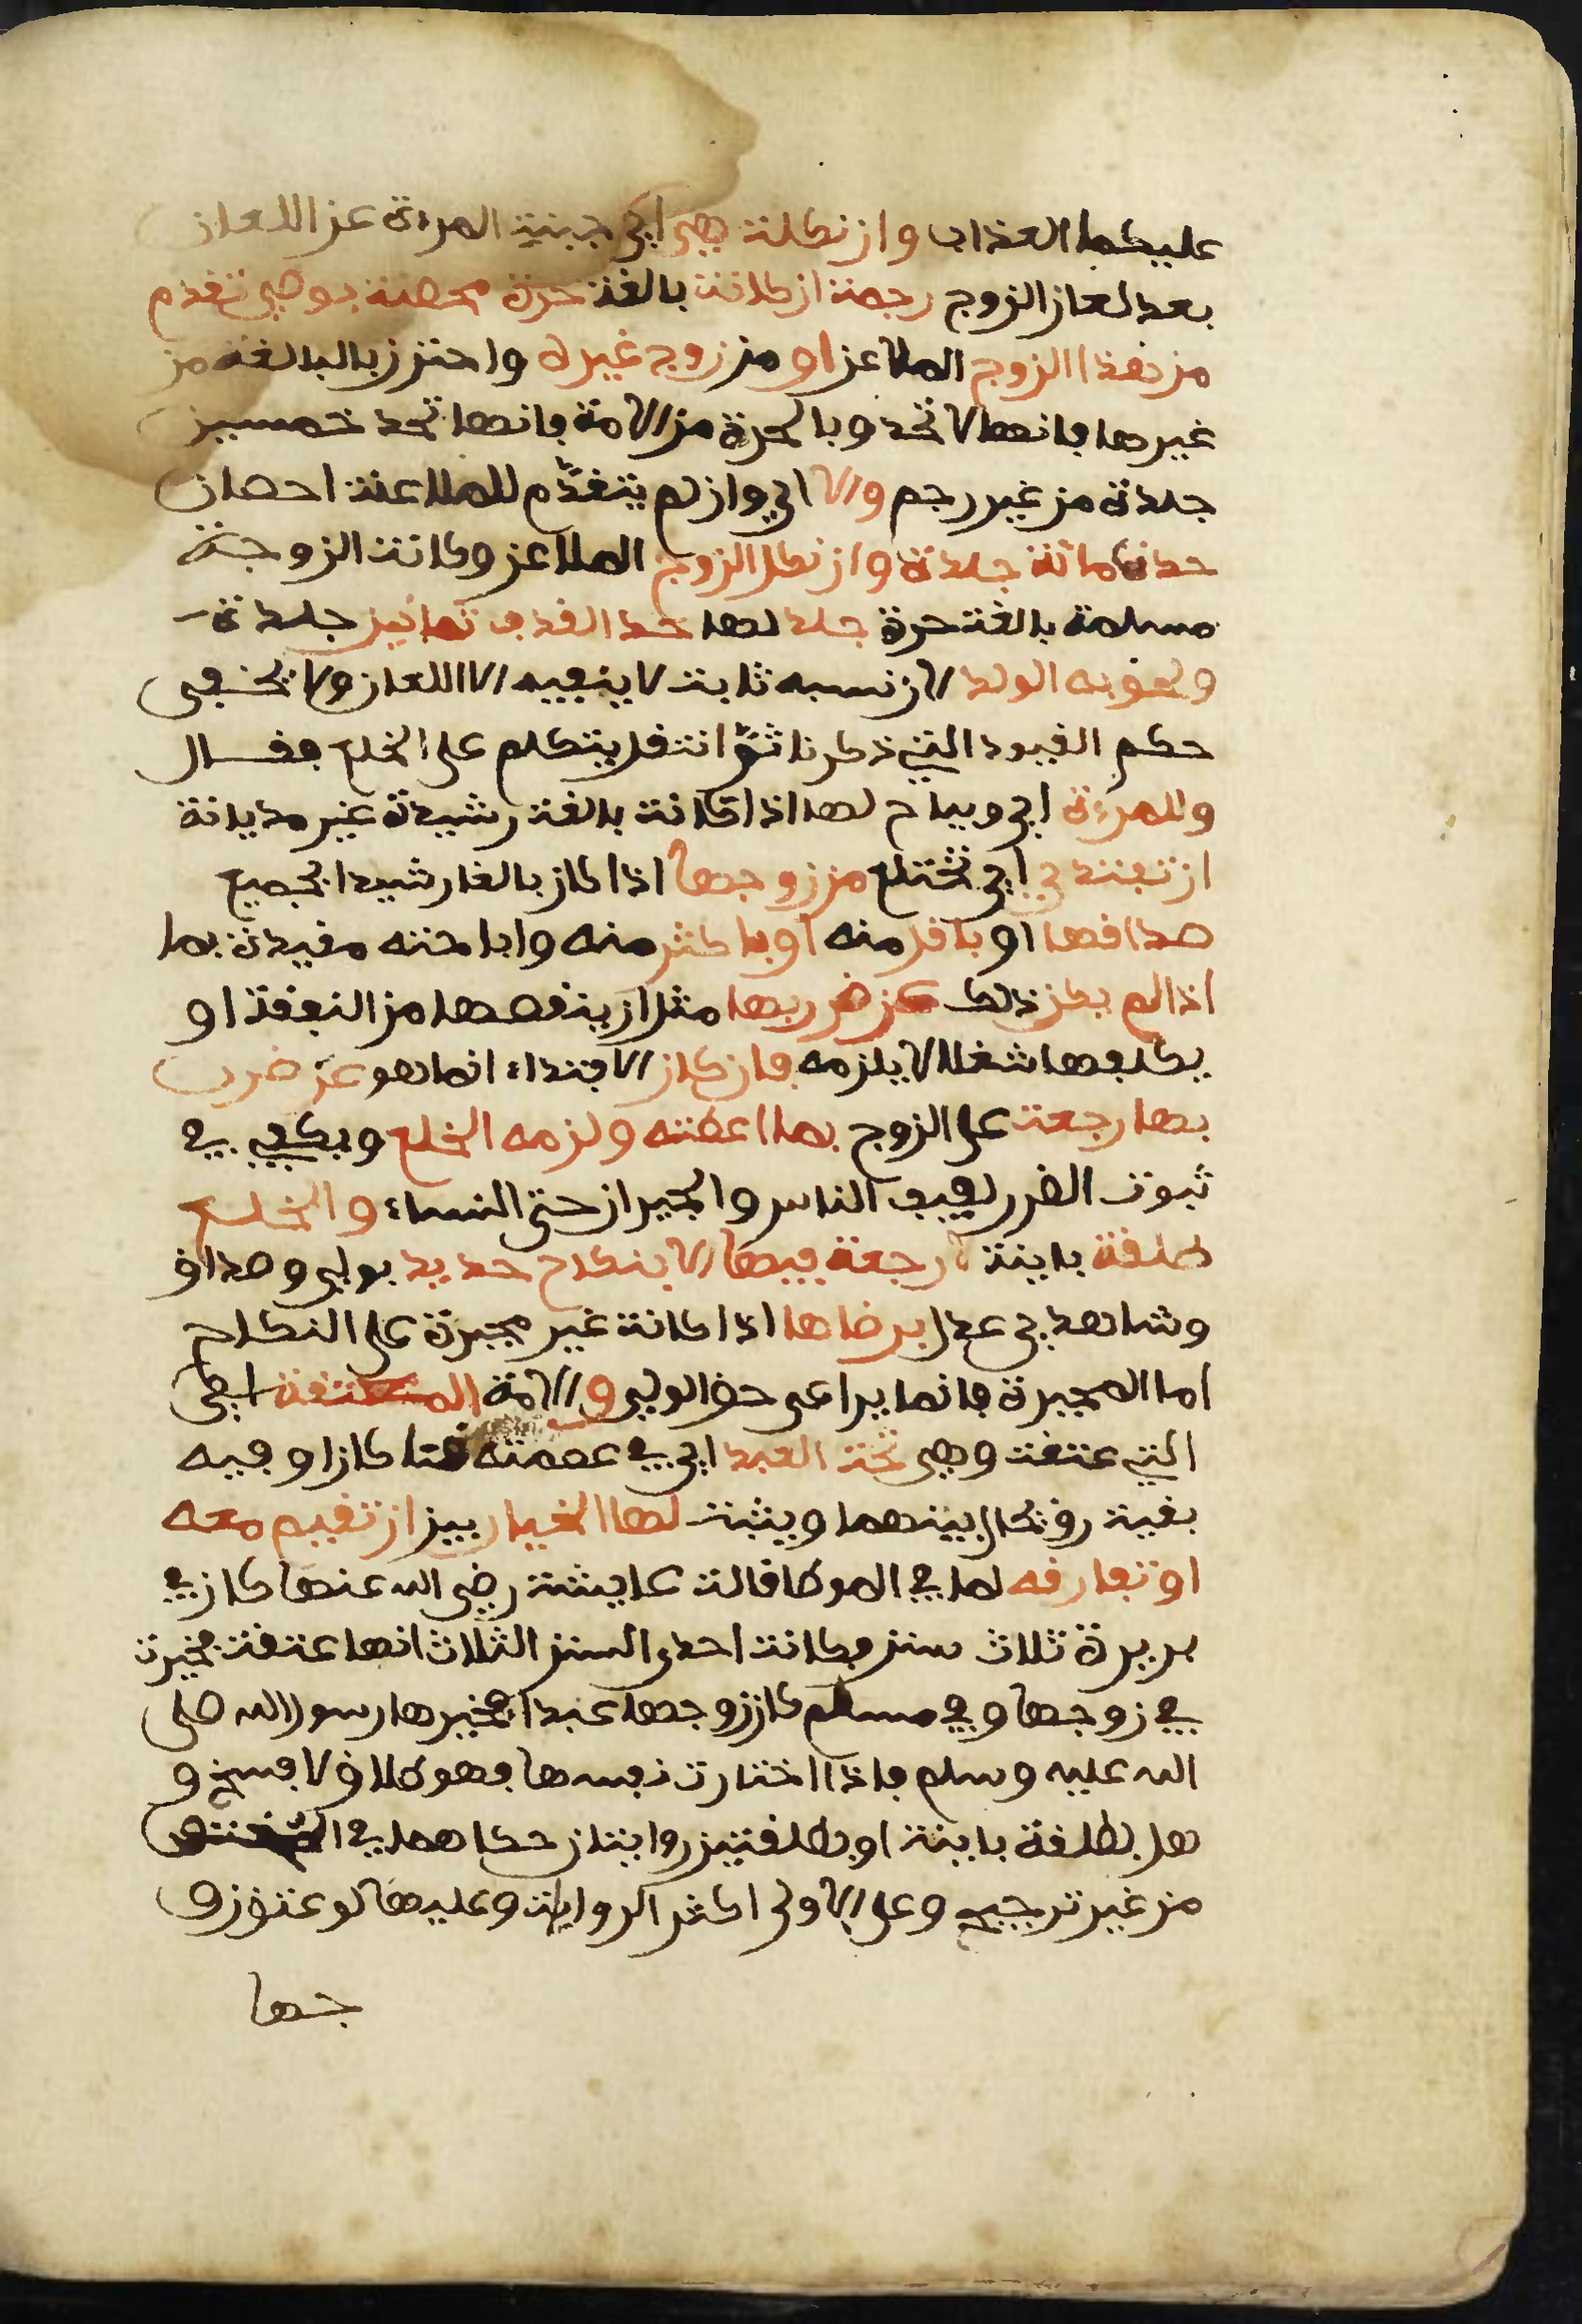 عليهما العذاب وان نكلت هي اي جبنت المرءة عن اللعان
بعد لعان الزوج رجمت ان كانت بالغة حرة محصنة بوطي تقدم
من هذا الزوج الملاعن او من زوج غيره واحترز بالبالغة من
غيرها فانها لا تحد وبالحرة من الامة فانها تحد خمسين
جلدة من غير رجم والا اي وان لم يتقدم للملاعنة احصان
حدت مائة جلدة وان نكل الزوج الملاعن وكانت الزوجة
مسلمة بالغة حرة جلد لها حد القذف ثمانين جلدة
ولحق به الولد لان نسبه ثابت لا ينفيه الا اللعان ولا يخفى
حكم القيود التي ذكرنا ثم انتقل يتكلم على الخلع فقال
وللمرءة اي ويباح لها اذا كانت بالغة رشيدة غير مديانة
ان تفتدي اي تختلع من زوجها اذا كان بالغا رشيدا بجميع
صداقها او باقل منه او باكثر منه واباحته مقيدة بما
اذا لم يكن ذلك عن ضرر بها مثل ان ينقصها من النفقة او
يكلفها شغلا لا يلزمه فان كان الافتداء انما هو عن ضرر
بها رجعت على الزوج بما اعطته ولزمه الخلع ويكفي في
ثبوت الضرر لفيف الناس والجيران حتى النساء والخلع
طلقة باينة لا رجعة فيها الا بنكاح جديد بولي وصداق
وشاهدي عدل برضاها اذا كانت غير مجبرة على النكاح
اما المجبرة فانما يراعى حق الولي والامة المعتقة اي
التي عتقت وهي تحت العبد اي في عصمته قنا كان او فيه
بقية رق يحال بينهما ويثبت لها الخيار بين ان تقيم معه
او تفارقه لما في الموطا قالت عايشة رضي الله عنها كان في
بريرة ثلاث سنن وكانت احدى السنن الثلاث انها عتقت فخيرت
في زوجها وفي مسلم كان زوجها عبدا فخيرها رسول الله صلى
الله عليه وسلم فاذا اختارت نفسها فهو طلاق لا فسخ و
هل بطلقة باينة او بطلقتين روايتان حكاهما في
من غير ترجيح وعلى الاولى اكثر الروايات وعليها لو عتق زو
جها